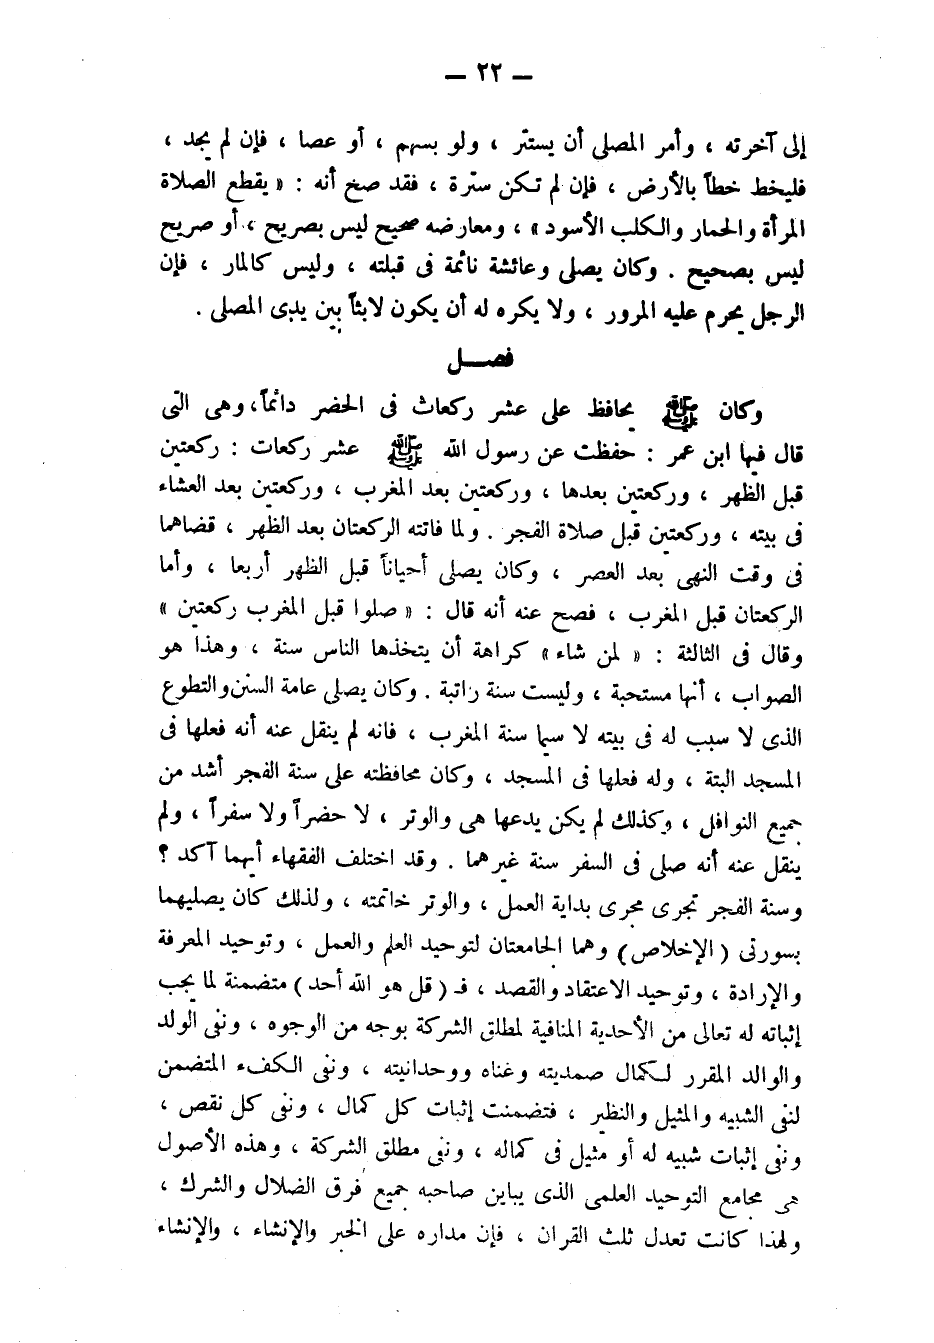 — ٢٢ —
إلى آخرته ، وأمر المصلى أن يستتر ، ولو بسهم ، أو عصا ، فإن لم يجد ،
فليخط خطاً بالأرض ، فإن لم تكن سترة ، فقد صح أنه : « يقطع الصلاة
المرأة والحمار والكلب الأسود » ، ومعارضه صحيح ليس بصريح ، أو صريح
ليس بصحيح . وكان يصلى وعائشة نائمة فى قبلته ، وليس كالمار ، فإن
الرجل يحرم عليه المرور ، ولا يكره له أن يكون لابثاً بين يدى المصلى .
فصــل
وكان ﷺ يحافظ على عشر ركعات فى الحضر دائماً، وهى التى
قال فيها ابن عمر : حفظت عن رسول الله ﷺ عشر ركعات : ركعتين
قبل الظهر ، وركعتين بعدها ، وركعتين بعد المغرب ، وركعتين بعد العشاء
فى بيته ، وركعتين قبل صلاة الفجر . ولما فاتته الركعتان بعد الظهر ، قضاهما
فى وقت النهى بعد العصر ، وكان يصلى أحياناً قبل الظهر أربعا ، وأما
الركعتان قبل المغرب ، فصح عنه أنه قال : « صلوا قبل المغرب ركعتين »
وقال فى الثالثة : « لمن شاء » كراهة أن يتخذها الناس سنة ، وهذا هو
الصواب ، أنها مستحبة ، وليست سنة راتبة . وكان يصلى عامة السنن والتطوع
الذى لا سبب له فى بيته لا سيما سنة المغرب ، فانه لم ينقل عنه أنه فعلها فى
المسجد البتة ، وله فعلها فى المسجد ، وكان محافظته على سنة الفجر أشد من
جميع النوافل ، وكذلك لم يكن يدعها هى والوتر ، لا حضراً ولا سفراً ، ولم
ينقل عنه أنه صلى فى السفر سنة غيرهما . وقد اختلف الفقهاء أيهما آكد ؟
وسنة الفجر تجرى مجرى بداية العمل ، والوتر خاتمته ، ولذلك كان يصليهما
بسورتى ( الإخلاص ) وهما الجامعتان لتوحيد العلم والعمل ، وتوحيد المعرفة
والإرادة ، وتوحيد الاعتقاد والقصد ، فـ ( قل هو الله أحد ) متضمنة لما يجب
إثباته له تعالى من الأحدية المنافية لمطلق الشركة بوجه من الوجوه ، ونفى الولد
والوالد المقرر لكمال صمديته وغناه ووحدانيته ، ونفى الكفء المتضمن
لنفى الشبيه والمثيل والنظير ، فتضمنت إثبات كل كمال ، ونفى كل نقص ،
ونفى إثبات شبيه له أو مثيل فى كماله ، ونفى مطلق الشركة ، وهذه الأصول
هى مجامع التوحيد العلمى الذى يباين صاحبه جميع فرق الضلال والشرك ،
ولهذا كانت تعدل ثلث القران ، فإن مداره على الخبر والإنشاء ، والإنشاء